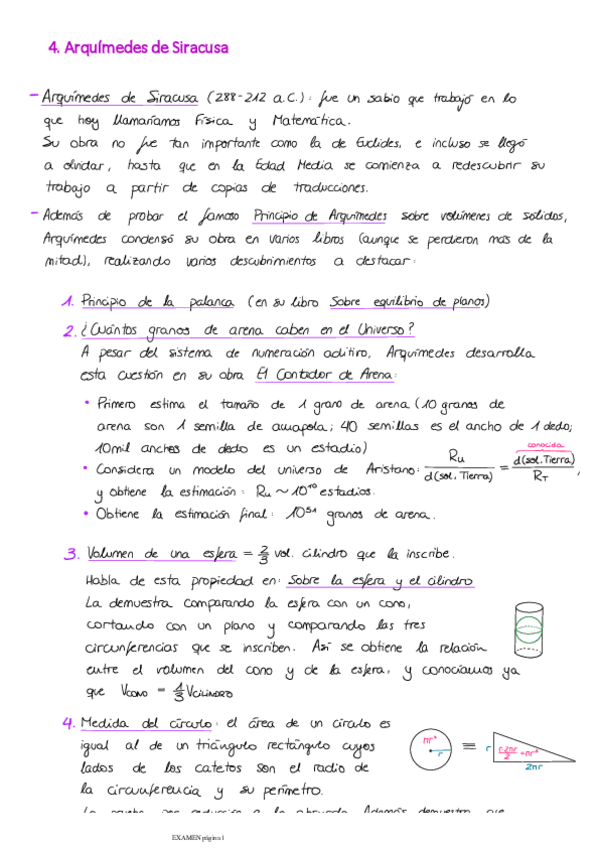 4. Arquímedes de Siracusa
- Arquímedes de Siracusa (288-212 a.C.): fue un sabio que trabajó en lo
que hoy llamaríamos Física y Matemática.
Su obra no fue tan importante como la de Euclides, e incluso se llegó
a olvidar, hasta que en la Edad Media se comienza a redescubrir su
trabajo a partir de copias de traducciones.
- Además de probar el famoso Principio de Arquímedes sobre volúmenes de sólidos,
Arquímedes condensó su obra en varios libros (aunque se perdieron más de la
mitad), realizando varios descubrimientos a destacar:
1. Principio de la palanca (en su libro Sobre equilibrio de planos)
2. ¿Cuántos granos de arena caben en el Universo?
A pesar del sistema de numeración aditivo, Arquímedes desarrolla
esta cuestión en su obra El Contador de Arena:
• Primero estima el tamaño de 1 grano de arena (10 granos de
arena son 1 semilla de amapola; 40 semillas es el ancho de 1 dedo;
10mil anchos de dedo es un estadio)
• Considera un modelo del universo de Aristarco: Ru / d(sol, Tierra) = d(sol, Tierra) / RT,
conocida
y obtiene la estimación: Ru ~ 10¹⁰ estadios.
• Obtiene la estimación final: 10⁵¹ granos de arena.
3. Volumen de una esfera = 2/3 vol. cilindro que la inscribe.
Habla de esta propiedad en: Sobre la esfera y el cilindro
La demuestra comparando la esfera con un cono,
cortando con un plano y comparando las tres
circunferencias que se inscriben. Así se obtiene la relación
entre el volumen del cono y de la esfera, y conocíamos ya
que VCONO = 1/3 VCILINDRO
4. Medida del círculo: el área de un círculo es
igual al de un triángulo rectángulo cuyos
lados de los catetos son el radio de
la circunferencia y su perímetro.
πr²
r
≡
r
r·2πr / 2 = πr²
2πr
EXAMEN página 1